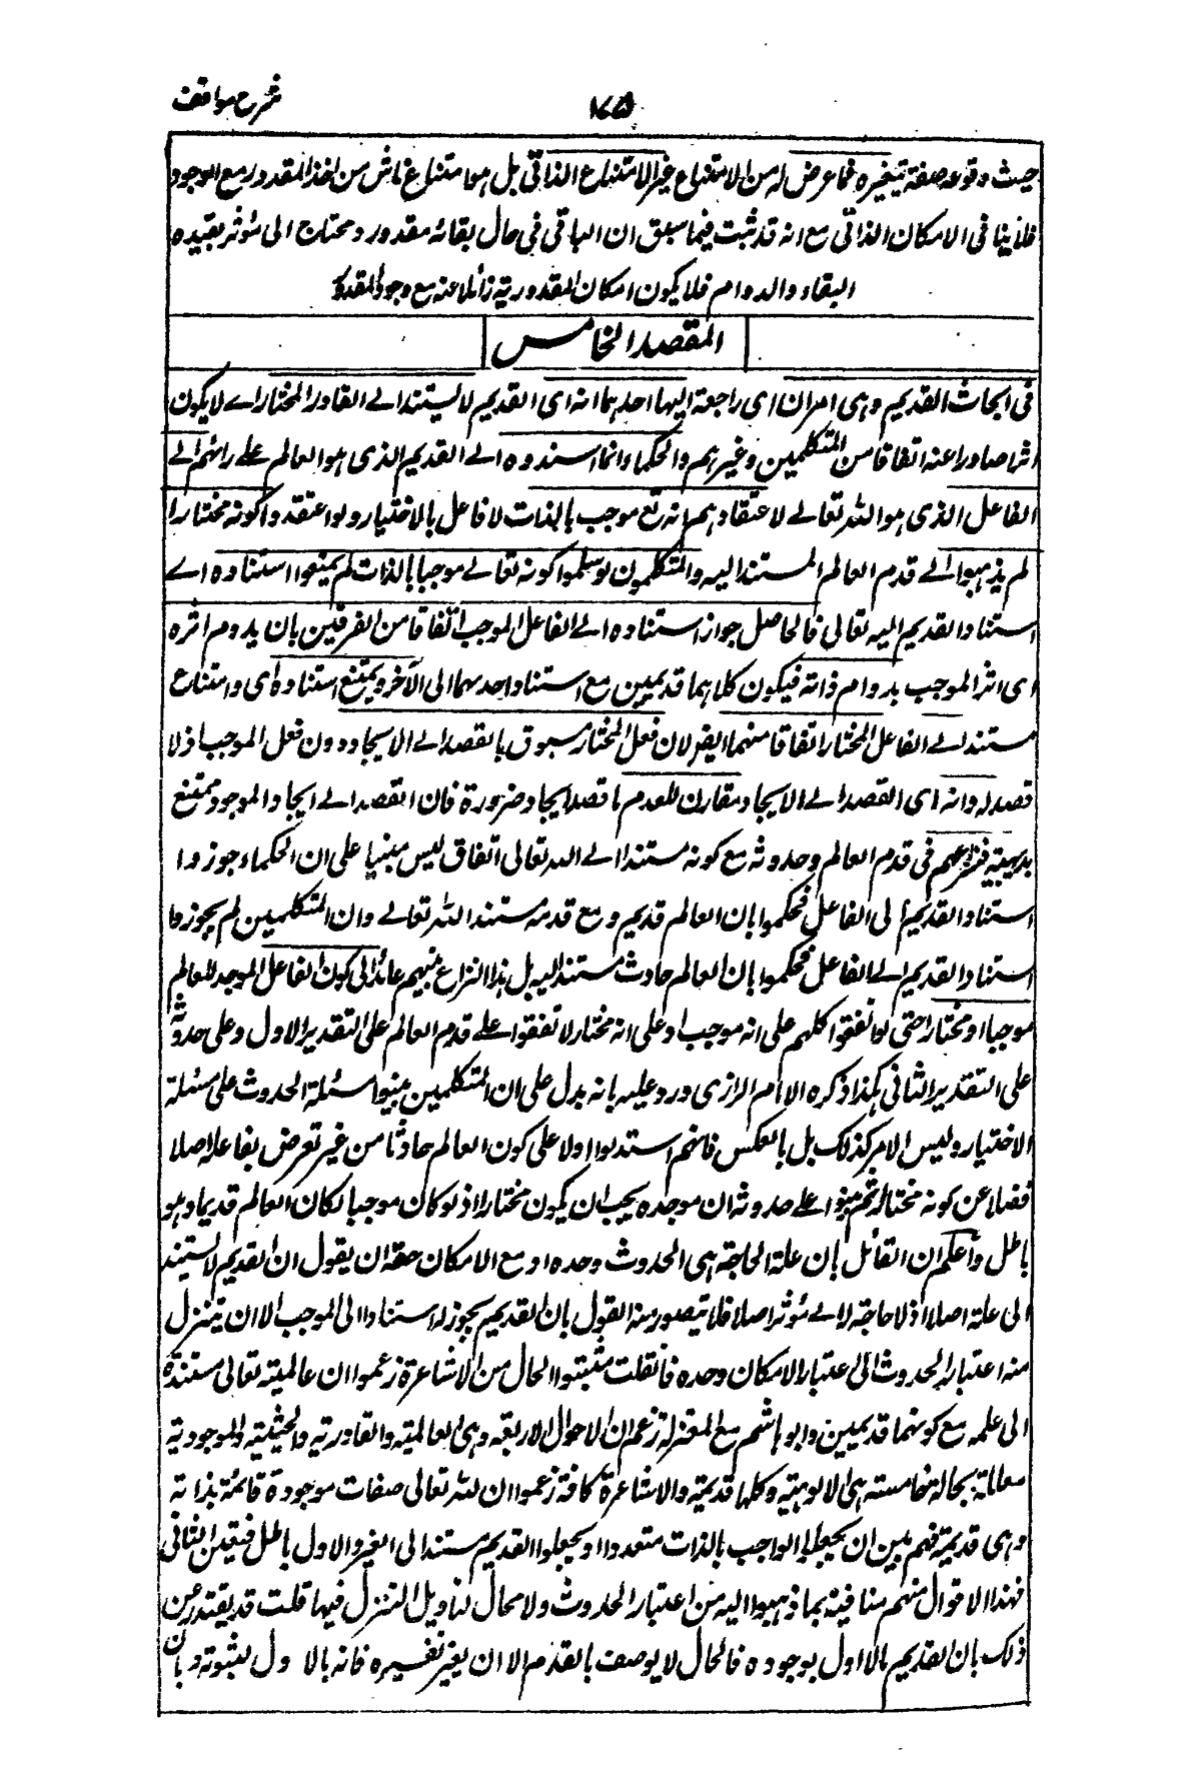 شرح مواقف
١٧٥
حيث وقوعه صفة تغيره فما عرض له من الامتناع غير الامتناع الذاتي بل هو امتناع ناش من اخذ المقدور مع الوجود
فلا ينافي الامكان الذاتي مع انه قد ثبت فيما سبق ان الباقي في حال بقائه مقدور ومحتاج الى مؤثر يفيده
البقاء والدوام فلا يكون امكان المقدورية زائلا عنه مع وجود المقدور
المقصد الخامس
في ابحاث القديم وهي امران اى راجعة اليها احدهما انه اى القديم لا يستند الى القادر المختار اے لا يكون
اثرا صادرا عنه اتفاقا من المتكلمين وغيرهم والحكماء وانما اسندوه الے القديم الذى هو العالم على رائهم الے
الفاعل الذى هو الله تعالے لاعتقادهم انه تع موجب بالذات لا فاعل بالاختيار ولو اعتقدوا كونه مختارا
لم يذهبوا الے قدم العالم المستند اليه والمتكلمون لو سلموا كونه تعالے موجبا بالذات لم يمنعوا استناده اے
استناد القديم اليه تعالى فالحاصل جواز استناده الے الفاعل الموجب اتفاقا من الفرقين بان يدوم اثره
اى اثر الموجب بدوام ذاته فيكون كلاهما قديمين مع استناد احدهما الى الآخر ويمتنع استناده اى وامتناع
مستند الے الفاعل المختار اتفاقا منهما ايضر لان فعل المختار مسبوق بالقصد الے الايجاد دون فعل الموجب اذ لا
قصد له وانه اى القصد الے الايجاد مقارن للعدم ما قصد ايجاده ضرورة فان القصد الے ايجاد الموجود ممتنع
بديهية فنزاعهم في قدم العالم وحدوثه مع كونه مستندا الے الله تعالى اتفاق ليس مبنيا على ان الحكماء جوزوا
استناد القديم الى الفاعل فحكموا بان العالم قديم ومع قدمه مستند الله تعالے وان المتكلمين لم يجوزوا
استناد القديم الے الفاعل فحكموا بان العالم حادث مستند اليه بل هذا النزاع بينهم عائد الى كون الفاعل الموجد للعالم
موجبا او مختارا حتى لو اتفقوا كلهم على انه موجب او على انه مختار لاتفقوا على قدم العالم على التقدير الاول وعلى حدوثه
على التقدير الثاني هكذا ذكره الامام الرازى ورد عليه بانه يدل على ان المتكلمين بنوا مسئلة الحدوث على مسئلة
الاختيار وليس الامر كذلك بل بالعكس فانهم استدلوا اولا على كون العالم حادثا من غير تعرض لفاعله اصلا
فضلا عن كونه مختارا ثم بنوا على حدوثه ان موجده يجب ان يكون مختارا اذ لو كان موجبا لكان العالم قديما وهو
باطل واعلم ان القائل بان علة الحاجة هي الحدوث وحده او مع الامكان حقه ان يقول ان القديم لا يستند
الى علة اصلا اذ لا حاجة له الے مؤثر اصلا فلا يتصور منه القول بان القديم يجوز استناده الى الموجب الا ان يتنزل
منه اعتبار الحدوث الى اعتبار الامكان وحده فان قلت مثبتوا الحال من الاشاعرة زعموا ان عالمية تعالى مستندة
الى علمه مع كونهما قديمين وابو هاشم مع المعتزلة زعم ان الاحوال الاربعة وهى العالمية والقادرية والحيثية والموجودية
معللة بحالة خامسة هى الالوهية وكلها قديمة والاشاعرة كافة زعموا ان لله تعالى صفات موجودة قائمة بذاته
وهى قديمة فهم بين ان يجعلوا الواجب بالذات متعددا او يجعلوا القديم مستندا الى الغير والاول باطل فتعين الثاني
فهذه الاقوال منهم منافية بما ذهبوا اليه من اعتبار الحدوث ولا مجال لتاويل التنزل فيها قلت قد يعتذر عن
ذلك بان القديم ما لا اول بوجوده فالحال لا يوصف بالقدم الا ان يغير تفسيره فانه بالا ول لثبوته وبان